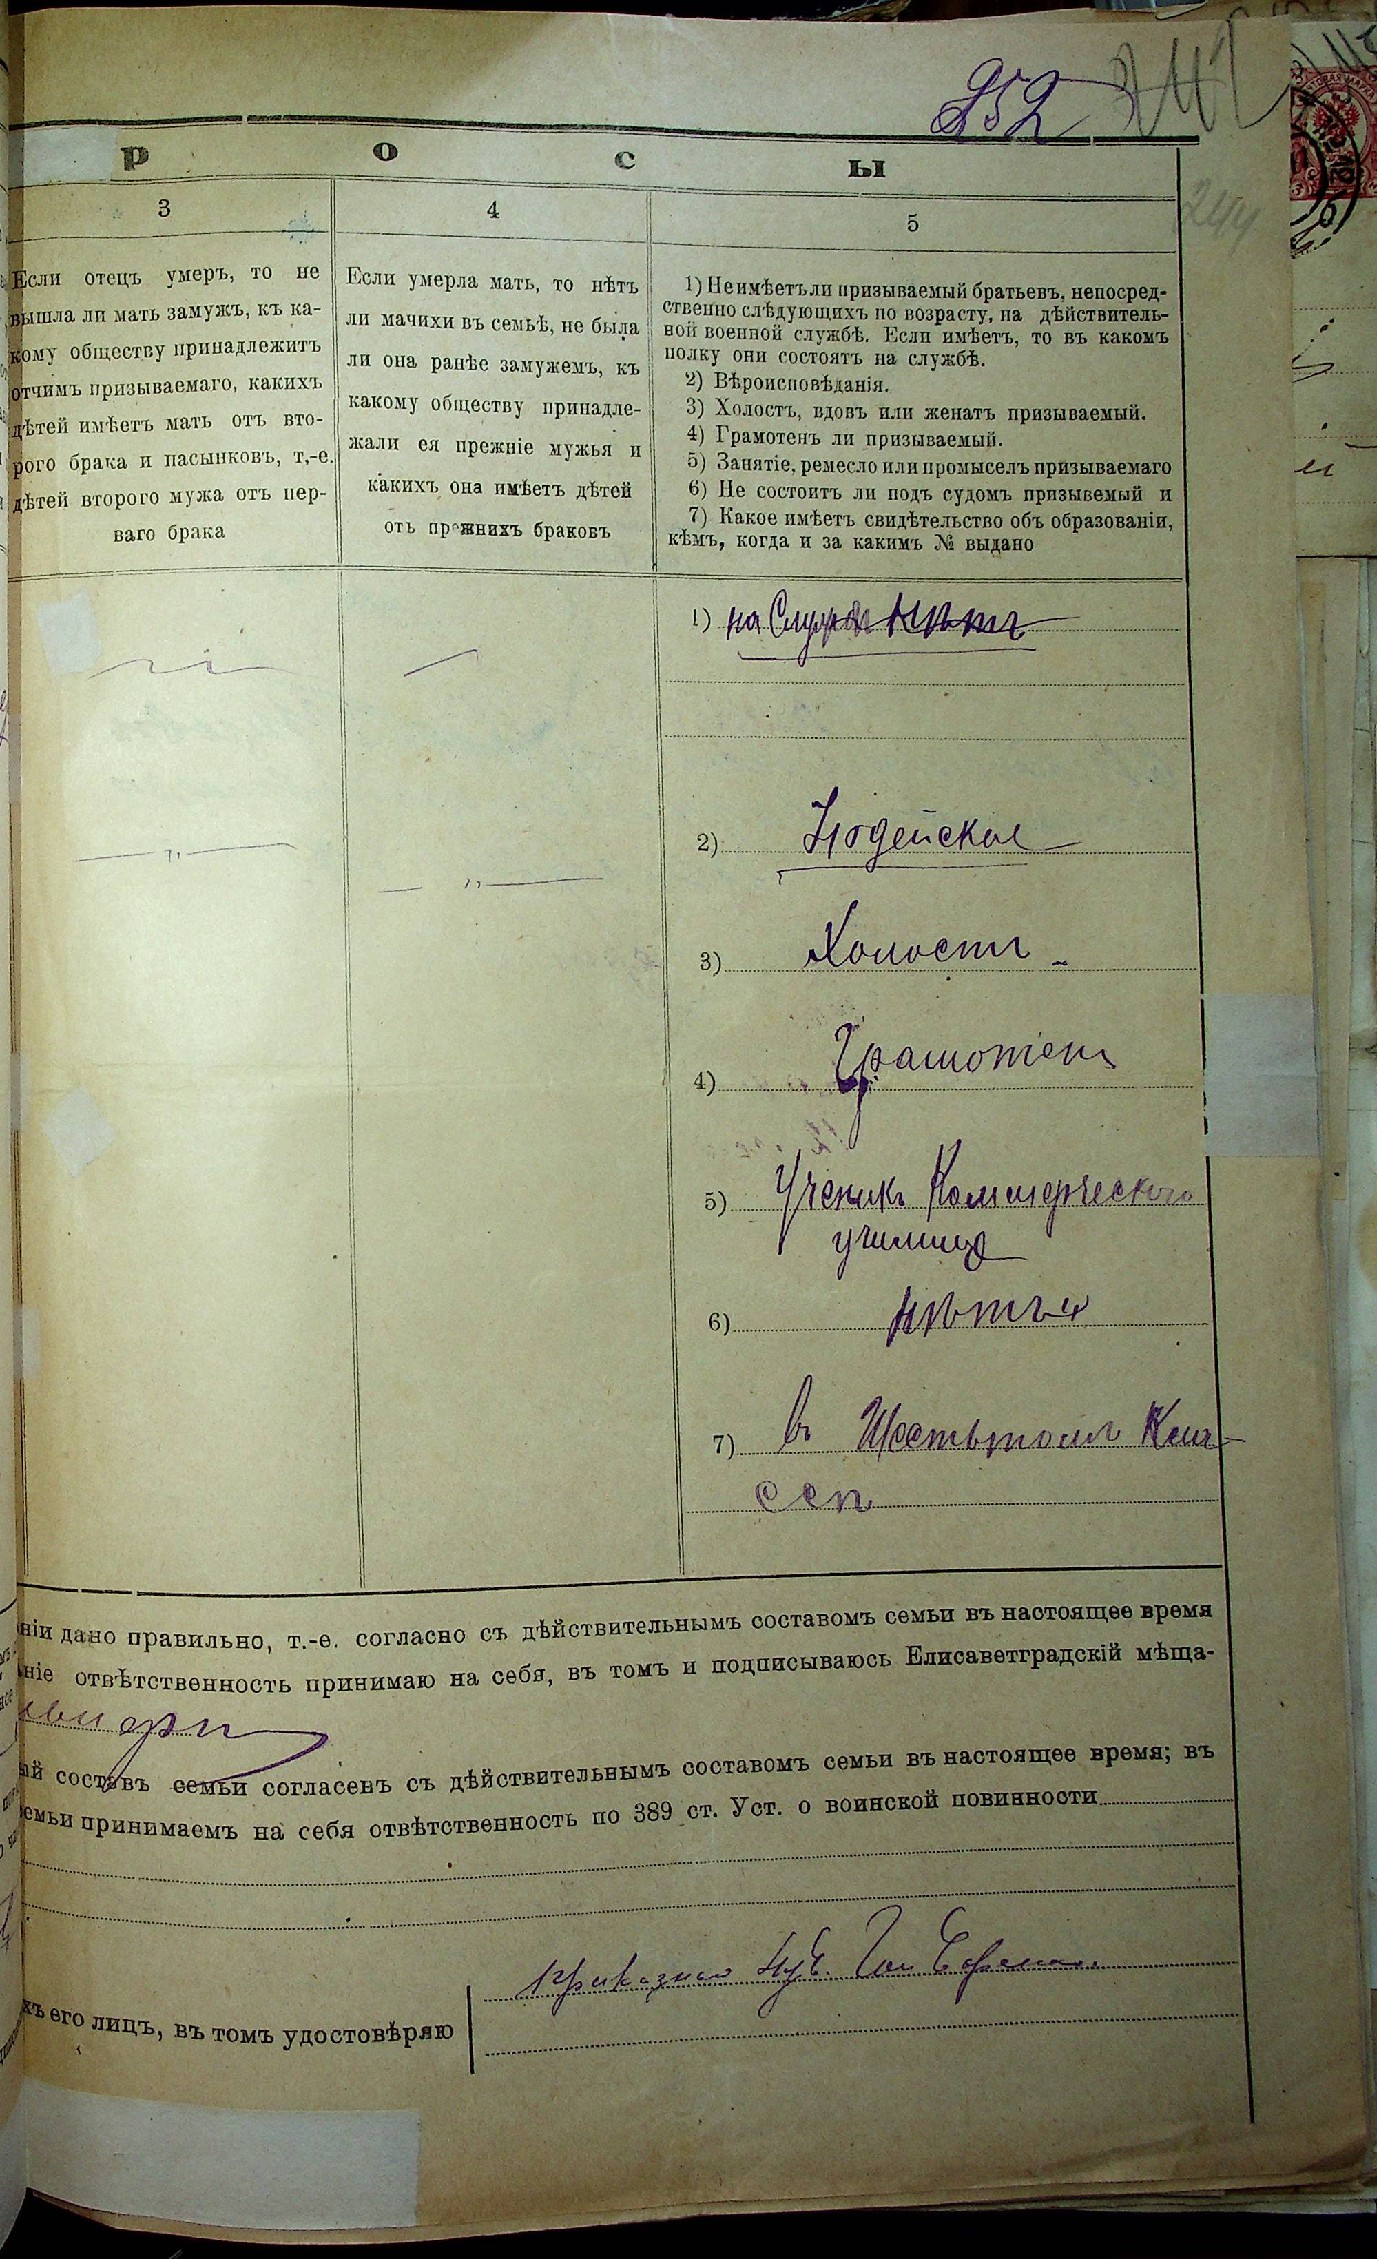 252
244
р о с ы
3
Если отецъ умеръ, то не
вышла ли мать замужъ, къ ка-
кому обществу принадлежитъ
отчимъ призываемаго, какихъ
дѣтей имѣетъ мать отъ вто-
рого брака и пасынковъ, т,-е.
дѣтей второго мужа отъ пер-
ваго брака
4
Если умерла мать, то нѣтъ
ли мачихи въ семьѣ, не была
ли она ранѣе замужемъ, къ
какому обществу принадле-
жали ея прежніе мужья и
какихъ она имѣетъ дѣтей
отъ прежнихъ браковъ
5
1) Не имѣетъ ли призываемый братьевъ, непосред-
ственно слѣдующихъ по возрасту, на дѣйствитель-
ной военной службѣ. Если имѣетъ, то въ какомъ
полку они состоятъ на службѣ.
2) Вѣроисповѣданія.
3) Холостъ, вдовъ или женатъ призываемый.
4) Грамотенъ ли призываемый.
5) Занятіе, ремесло или промыселъ призываемаго
6) Не состоитъ ли подъ судомъ призывемый и
7) Какое имѣетъ свидѣтельство объ образованіи,
кѣмъ, когда и за какимъ № выдано
1) на Службѣ Нѣтъ
2) Іюдейское
3) Холостъ
4) Грамотенъ
5) Ученикъ Коммерческого
училища
6) нѣтъ
7) въ Шестьтомъ Кла-
ссѣ
ніи дано правильно, т.-е. согласно съ дѣйствительнымъ составомъ семьи въ настоящее время
ніе отвѣтственность принимаю на себя, въ томъ и подписываюсь Елисаветградскій мѣща-
ай составъ семьи согласенъ съ дѣйствительнымъ составомъ семьи въ настоящее время; въ
емьи принимаемъ на себя отвѣтственность по 389 ст. Уст. о воинской повинности
хъ его лицъ, въ томъ удостовѣряю